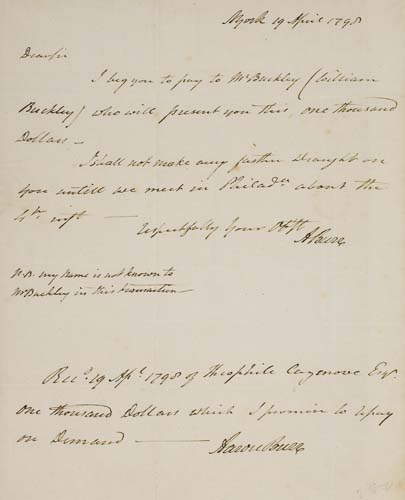 NYork 19 April 1798
Dear sir
I beg you to pay to Mr Buckley (William
Buckley) who will present you this, one thousand
Dollars –
I shall not make any further draught on
you untill we meet in Philada about the
4th inst –
respectfully Your Ob St
A Burr
N.B. my name is not known to
Mr Buckley in this transaction
Recd. 19 Apl. 1798 of Theophile Cazenove Esqr.
one thousand Dollars which I promise to repay
on Demand –
Aaron Burr